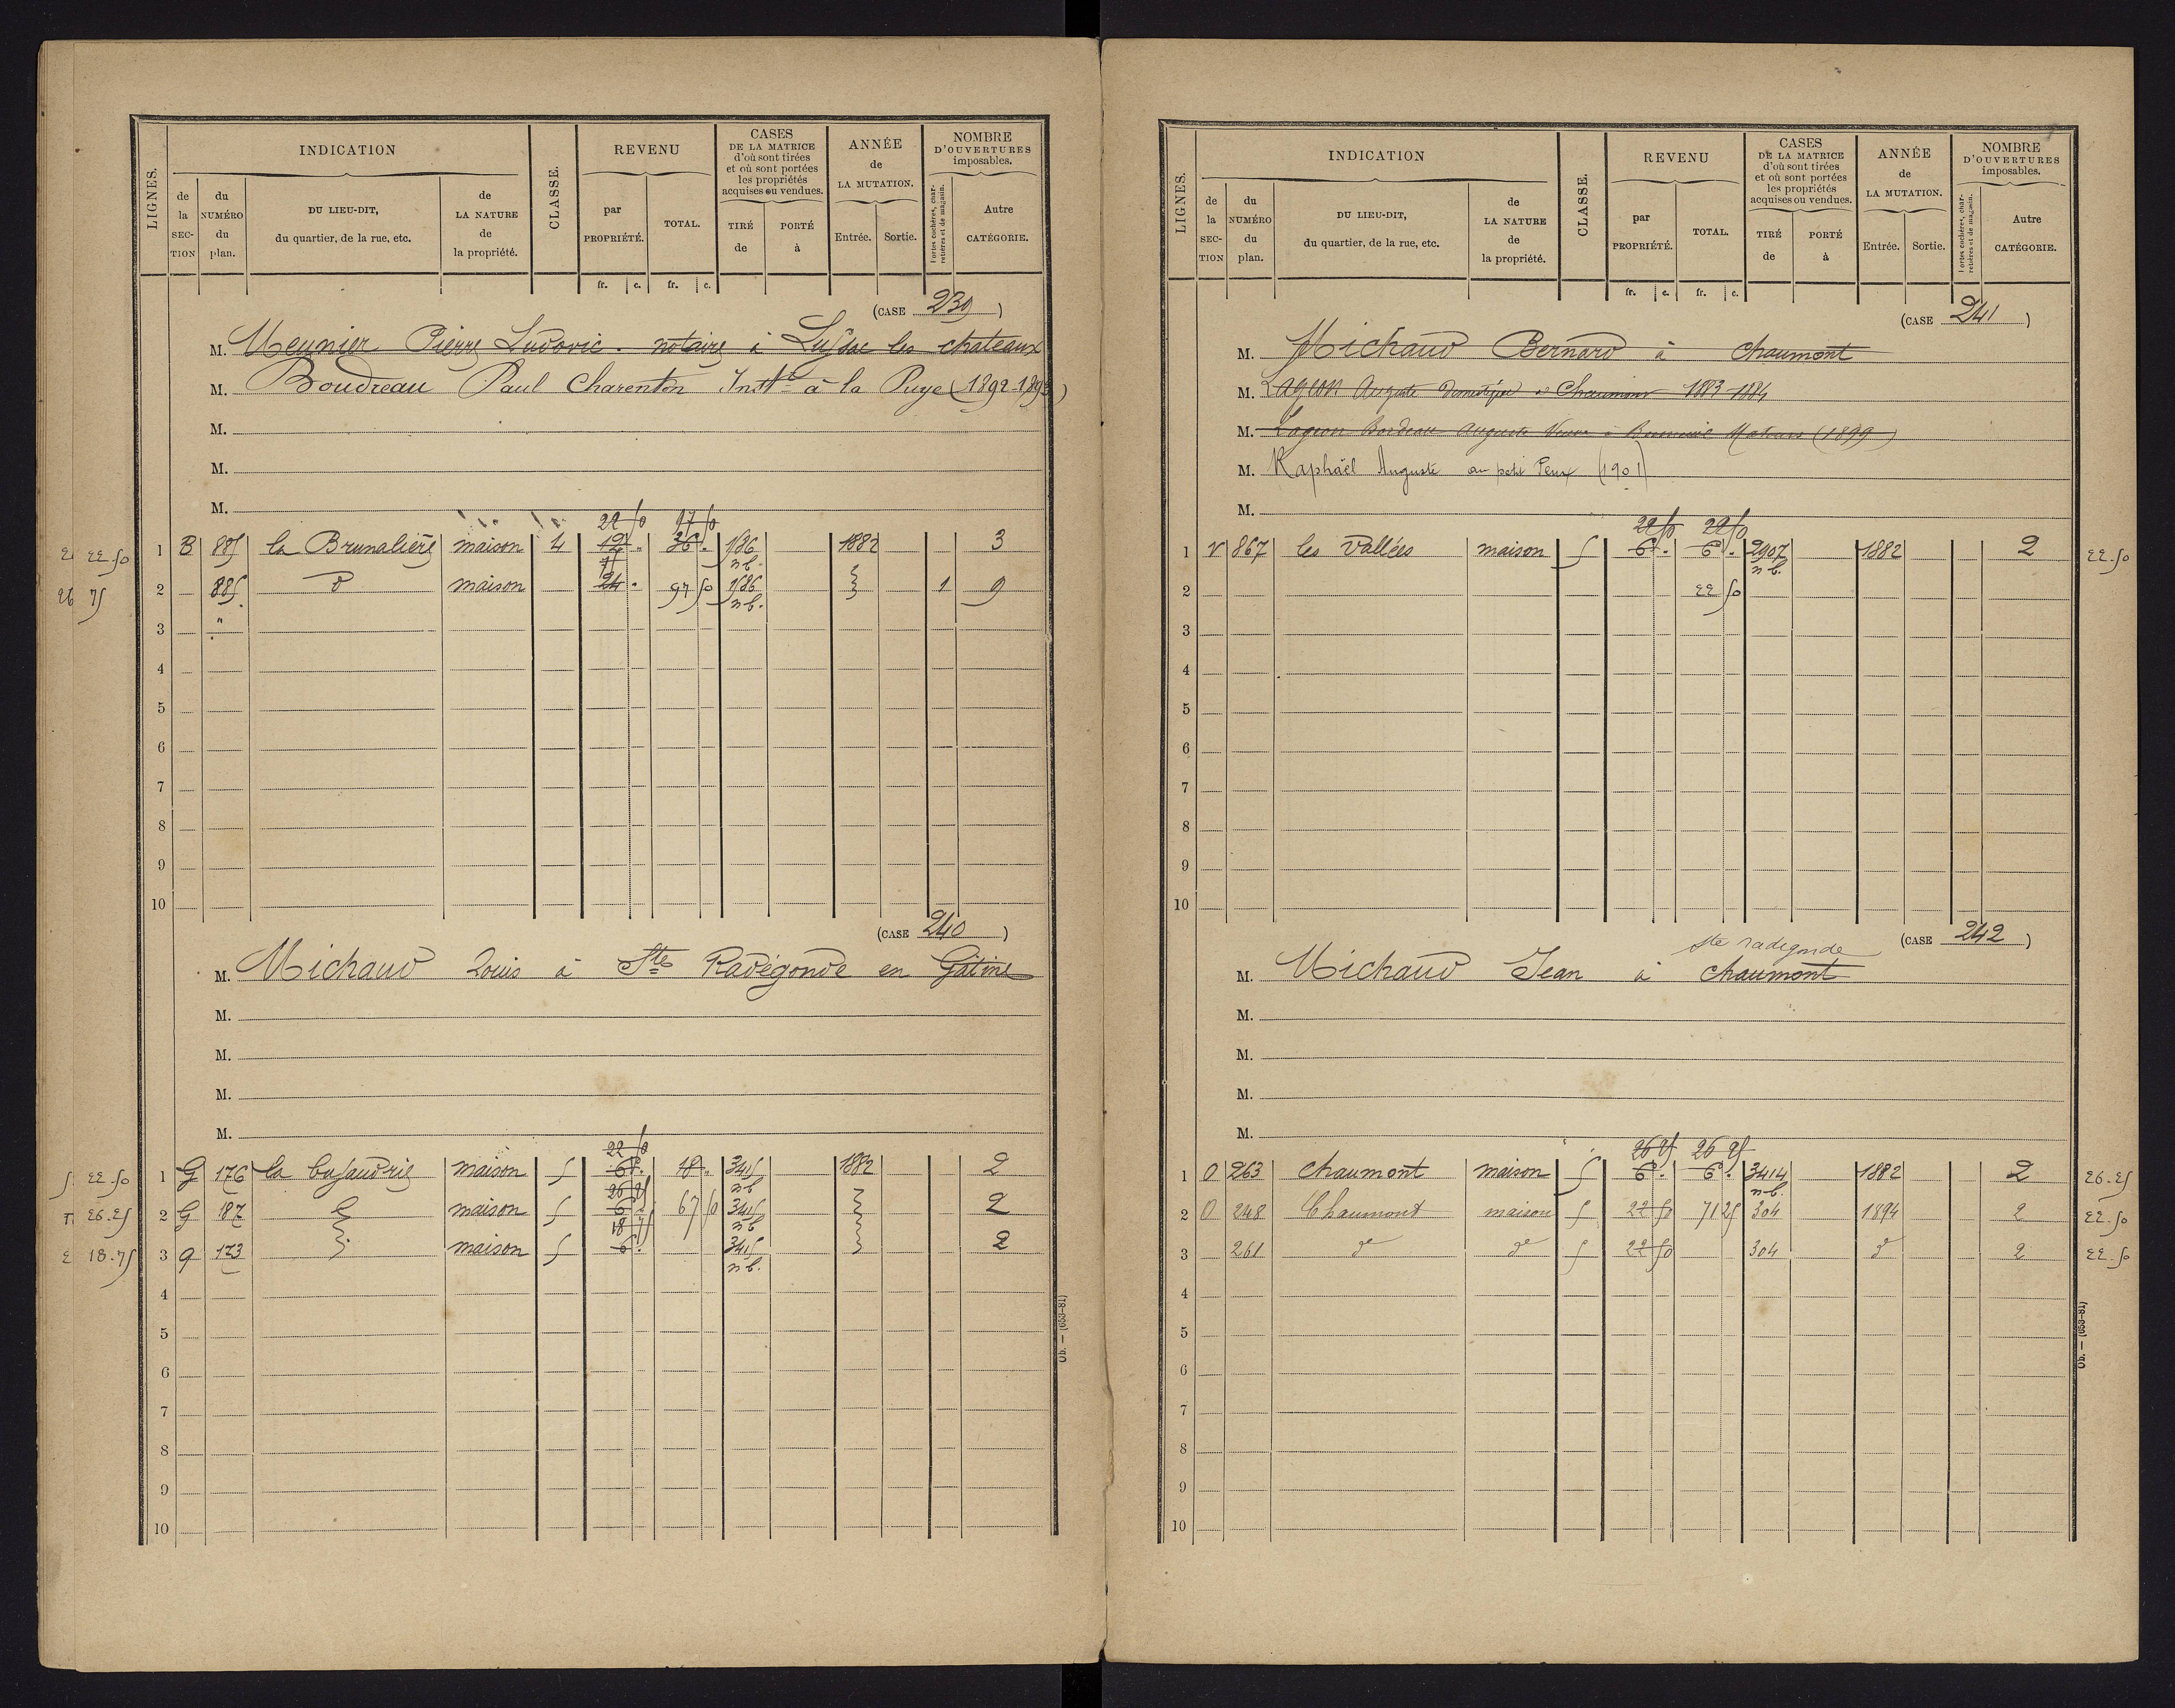 LIGNES.
INDICATION
de la SECTION
du NUMÉRO du plan.
DU LIEU-DIT, du quartier, de la rue, etc.
de LA NATURE de la propriété.
CLASSE.
REVENU
par PROPRIÉTÉ.
TOTAL.
CASES DE LA MATRICE d'où sont tirées et où sont portées les propriétés acquises ou vendues.
TIRÉ de
PORTÉ à
ANNÉE de LA MUTATION.
Entrée. Sortie.
NOMBRE D'OUVERTURES imposables.
Portes cochères, charretières et de magasin.
Autre CATÉGORIE.
fr. c. fr. c.
(CASE 239)
M. Meunier Pierre Ludovic notaire à Lussac les chateaux
M. Boudreau Paul Charenton Instr à la Puye (1892-1893)
M.
M.
M.
22 50 97 50
1 B 885 la Brunalière maison 4 12 . 36 . 186 1882 3
75 n b.
2 885 d maison 24 . 97 50 186 1 9
" n b.
3
4
5
6
7
8
9
10
22.50
75
(CASE 240)
M. Michaud Louis à Ste Radégonde en Gâtine
M.
M.
M.
M.
22 50
1 G 176 la busaudrie maison 5 6 . 18 . 3415 1882 2
26 25 n b
2 G 187 maison 5 6 67 50 3415 2
18 75 n b
3 g 173 maison 5 6 . 3415 2
n b.
4
5
6
7
8
9
10
22.50
26.25
18.75
Ob. — (653-81)
LIGNES.
INDICATION
de la SECTION
du NUMÉRO du plan.
DU LIEU-DIT, du quartier, de la rue, etc.
de LA NATURE de la propriété.
CLASSE.
REVENU
par PROPRIÉTÉ.
TOTAL.
CASES DE LA MATRICE d'où sont tirées et où sont portées les propriétés acquises ou vendues.
TIRÉ de
PORTÉ à
ANNÉE de LA MUTATION.
Entrée. Sortie.
NOMBRE D'OUVERTURES imposables.
Portes cochères, charretières et de magasin.
Autre CATÉGORIE.
fr. c. fr. c.
(CASE 241)
M. Michaud Bernard à Chaumont
M. Lageon Auguste Domestique à Chaumont 1883-1884
M. Lageon Bordeau Auguste Veuve à Matours (1899)
M. Raphaël Auguste au petit Peux (1901)
M.
22 50 22 50
1 V 867 les Vallées maison 5 6 . 6 . 2907 1882 2 22.50
n b.
2 22 50
3
4
5
6
7
8
9
10
(CASE 242)
Ste radegonde
M. Michaud Jean à Chaumont
M.
M.
M.
M.
26 25 26 25
1 O 263 Chaumont maison 5 6 . 6 . 3414 1882 2 26.25
n b.
2 O 248 Chaumont maison 5 22 50 71 25 304 1894 2 22.50
3 261 de de 5 22 50 304 de 2 22.50
4
5
6
7
8
9
10
Ob. — (653-81)